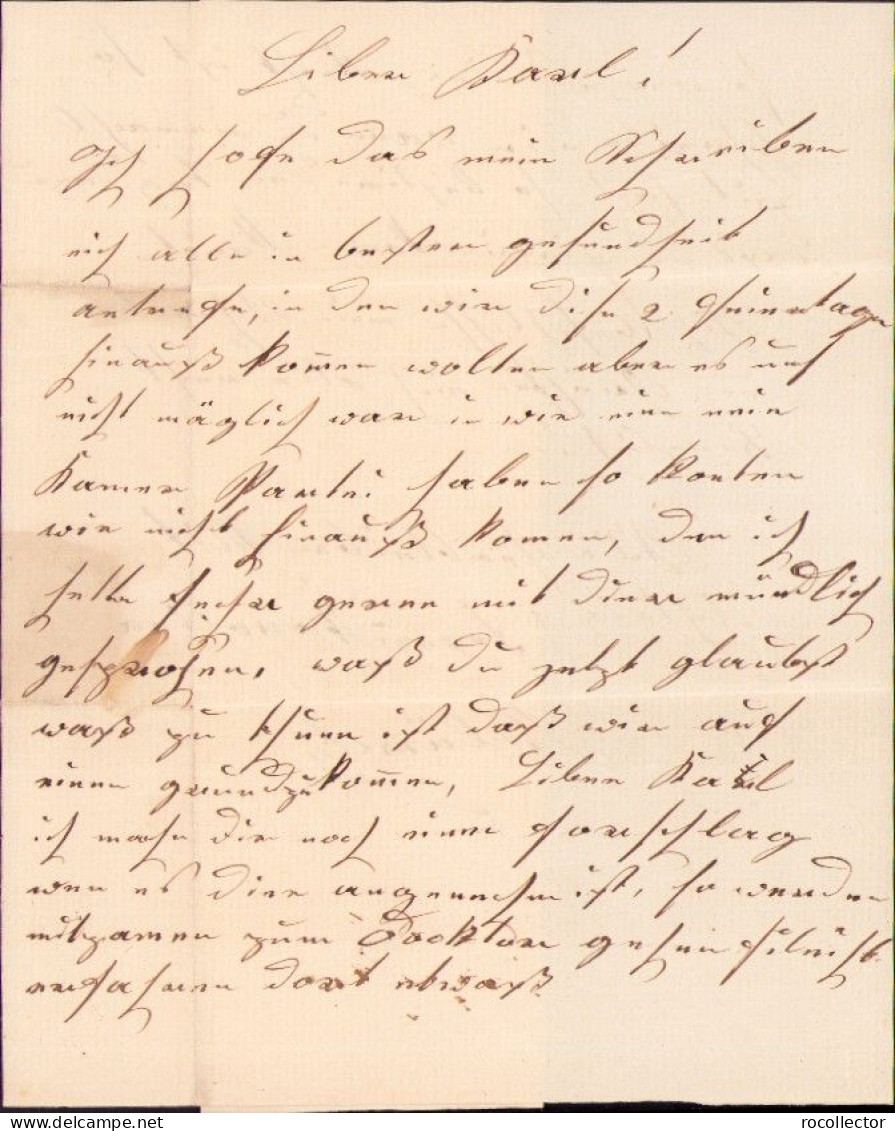 Liber Karl!
Ich hofe das mein Schreiben
eich alle in bester gesundheit
antrefe, in dem wir dise 2 Feiertage
hinauß kom̄en wolten aber es unß
nicht mäglich war in wie eine neie
Kamer Partei haben so konten
wir nicht hinauß komen, den ich
hette sehr gerne mit dier mündlich
gesprochen, waß du jetzt glaubst
waß zu thuen ist daß wir auf
einen grund zu kom̄en, Liber Karl
ich mache dir noch einen forschlag
wen es dier angenehm ist, so werden
mitzamen zum Docktor gehen fileicht
erfahren dort etwaß
rocollector